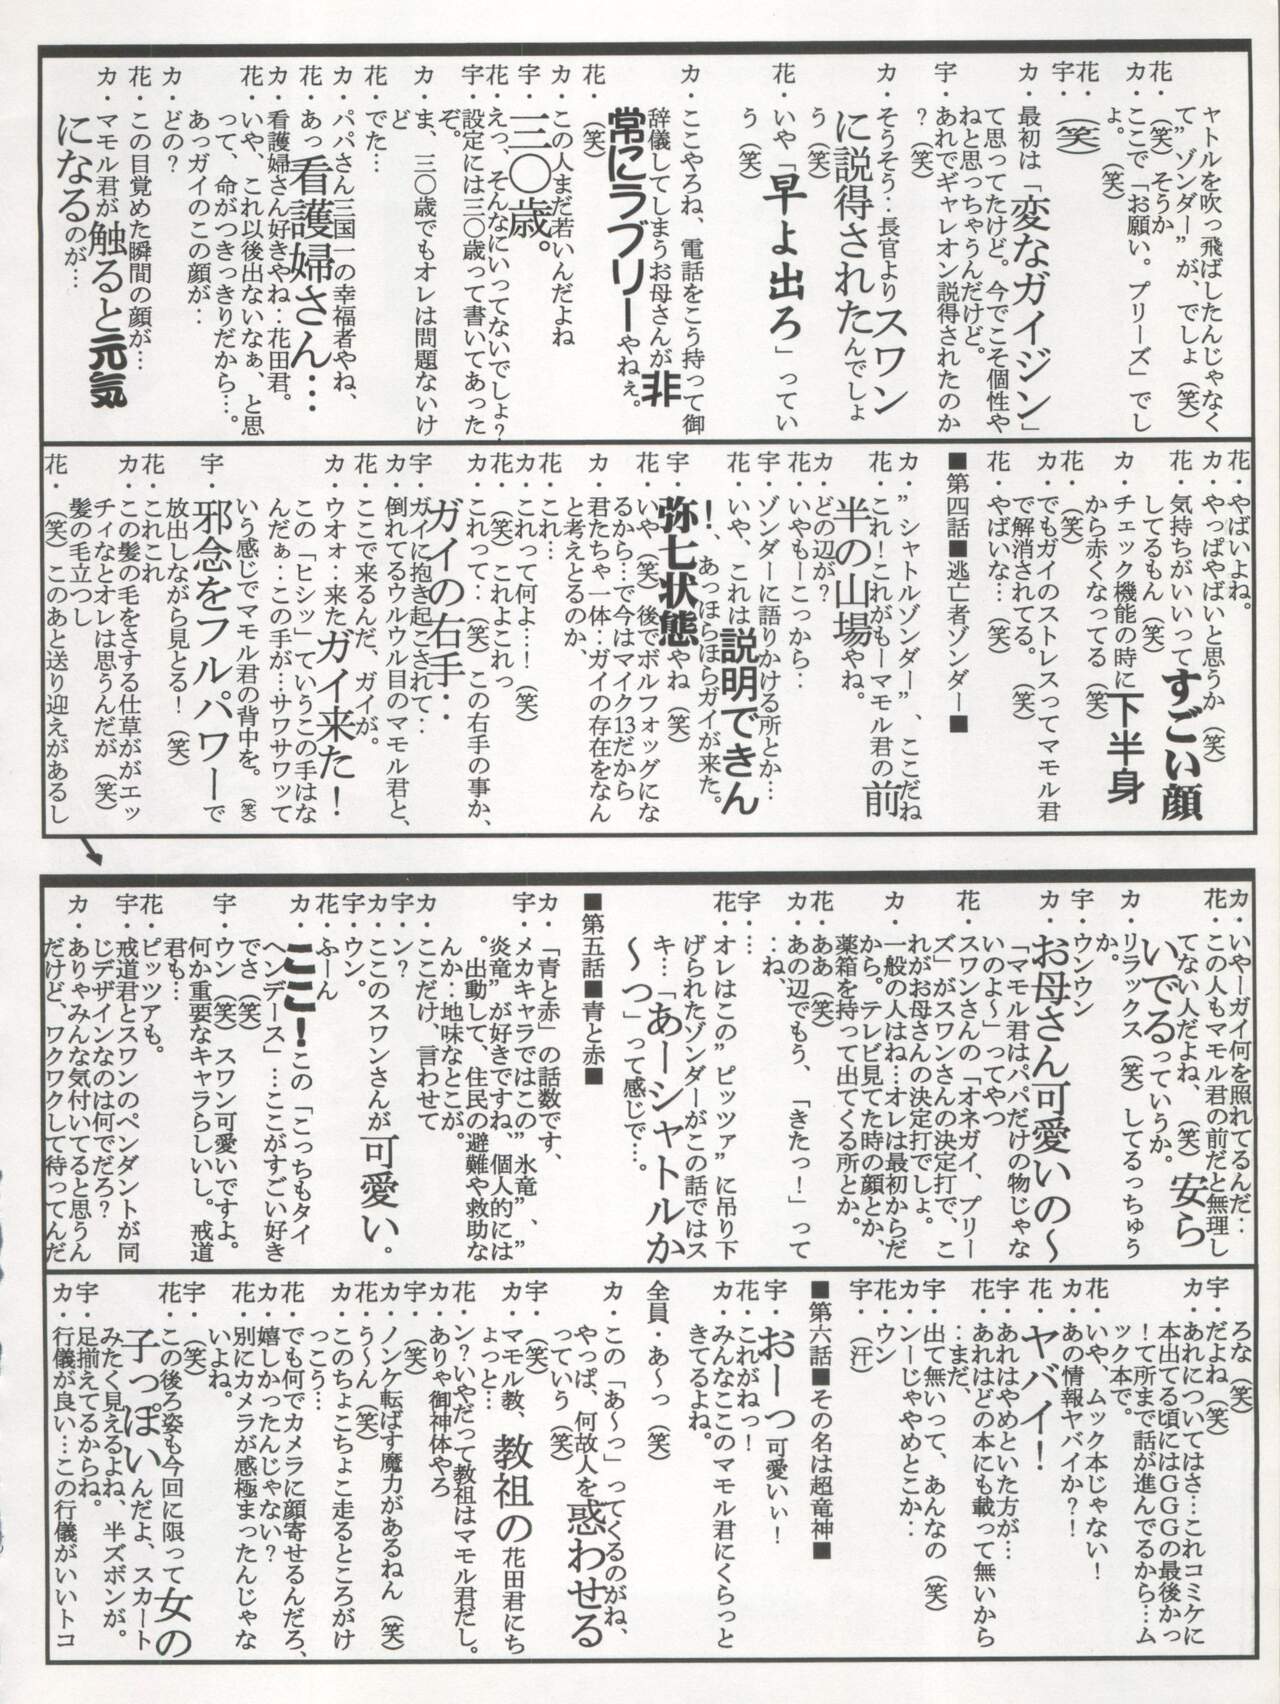 ャトルを吹っ飛ばしたんじゃなく
て”ゾンダー”が、でしょ（笑）
花・（笑）そうか
カ・ここで「お願い。プリーズ」でし
ょ。　　　（笑）
花・
宇・（笑）
カ・最初は「変なガイジン」
て思ってたけど。今でこそ個性や
ねと思っちゃうんだけど。
宇・あれでギャレオン説得されたのか
？（笑）
カ・そうそう‥長官よりスワン
に説得されたんでしょ
う（笑）
花・いや「早よ出ろ」ってい
う（笑）
カ・ここやろね、電話をこう持って御
辞儀してしまうお母さんが非
常にラブリーやねぇ。
花・（笑）
カ・この人まだ若いんだよね
宇・三〇歳。
花・えっ、そんなにいってないでしょ？
宇・設定には三〇歳って書いてあった
ぞ。
カ・ま、三〇歳でもオレは問題ないけ
ど
花・でた…
カ・パパさん三国一の幸福者やね、
花・あっ看護婦さん…
カ・看護婦さん好きやね‥花田君。
花・いや、これ以後出ないなぁ、と思
って、命がつきっきりだから…。
あっガイのこの顔が‥
カ・どの？
花・この目覚めた瞬間の顔が…
カ・マモル君が触ると元気
になるのが…
花・やばいよね。
カ・やっぱやばいと思うか（笑）
花・気持ちがいいってすごい顔
してるもん（笑）
カ・チェック機能の時に下半身
から赤くなってる（笑）
花・（笑）
カ・でもガイのストレスってマモル君
で解消されてる。（笑）
花・やばいな…（笑）
■第四話■逃亡者ゾンダー■
カ・”シャトルゾンダー”、ここだね
花・これ！これがもーマモル君の前
半の山場やね。
カ・どの辺が？
花・いやもーこっから‥
宇・ゾンダーに語りかける所とか…
花・いや、これは説明できん
！、あっほらほらガイが来た。
宇・弥七状態やね（笑）
花・いや（笑）後でボルフォッグにな
るから…で今はマイク13だから
カ・君たちゃ一体‥ガイの存在をなん
と考えとるのか、
花・これ…
カ・これって何よ…！（笑）
花・（笑）これよこれっ
カ・これって‥（笑）この右手の事か、
ガイの右手‥
宇・ガイに抱き起こされて‥
カ・倒れてるウルウル目のマモル君と、
花・ここで来るんだ、ガイが。
カ・ウオォ‥来たガイ来た！
この「ヒシッ」ていうこの手はな
んだぁ‥この手が…サワサワッて
いう感じでマモル君の背中を。（笑）
宇・邪念をフルパワーで
放出しながら見とる！（笑）
花・これこれ
カ・この髪の毛をさする仕草ががエッ
チィなとオレは思うんだが（笑）
髪の毛立つし
花・（笑）このあと送り迎えがあるし
カ・いやーガイ何を照れてるんだ‥
花・この人もマモル君の前だと無理し
てない人だよね、（笑）安ら
いでるっていうか。
カ・リラックス（笑）してるっちゅう
か。
宇・ウンウン
カ・お母さん可愛いの〜
「マモル君はパパだけの物じゃな
いのよ〜」ってやつ
花・スワンさんの「オネガイ、プリー
ズ」がスワンさんの決定打で、こ
れがお母さんの決定打でしょ。
カ・一般の人はね…オレは最初からだ
から。テレビ見てた時の顔とか、
薬箱を持って出てくる所とか。
花・ああ（笑）
カ・あの辺でもう、「きたっ！」って
‥ね、
宇・…
花・オレはこの”ピッツァ”に吊り下
げられたゾンダーがこの話ではス
キ…「あーシャトルか
〜つ」って感じで…。
■第五話■青と赤■
カ・「青と赤」の話数です、
宇・メカキャラではこの”氷竜”、”
炎竜”が好きですね、個人的には
。出動して、住民の避難や救助な
んか‥地味なとこが。
カ・ここだけ、言わせて
宇・ン？
カ・ここのスワンさんが可愛い。
宇・ウン。
花・ふーん
カ・ここ！この「こっちもタイ
ヘンデース」…ここがすごい好き
でさ（笑）
宇・ウン（笑）スワン可愛いですよ。
何か重要なキャラらしいし。戒道
君も…
花・ピッツアも。
宇・戒道君とスワンのペンダントが同
じデザインなのは何でだろ？
カ・ありゃみんな気付いてると思うん
だけど、ワクワクして待ってんだ
ろな（笑）
宇・だよね（笑）
カ・あれについてはさ…これコミケに
本出てる頃にはＧＧＧの最後かっ
！て所まで話が進んでるから…ム
ック本で。
花・いや、ムック本じゃない！
カ・あの情報ヤバイか？！
花・ヤバイ！
宇・あれはやめといた方が…
花・あれはどの本にも載って無いから
‥まだ、
宇・出て無いって、あんなの（笑）
カ・ンーじゃやめとこか‥
花・ウン
宇・（汗）
■第六話■その名は超竜神■
宇・おーっ可愛いぃ！
花・これがねっ！
カ・みんなここのマモル君にくらっと
きてるよね。
全員・あ〜っ（笑）
カ・この「あ〜っ」ってくるのがね、
やっぱ、何故人を惑わせる
っていう（笑）
宇・（笑）
カ・マモル教、教祖の花田君にち
ょっと…
花・ン？いやだって教祖はマモル君だし。
カ・ありゃ御神体やろ
宇・（笑）
カ・ノンケ転ばす魔力があるねん（笑）
花・う〜ん（笑）
カ・このちょこちょこ走るところがけ
っこう…
花・でも何でカメラに顔寄せるんだろ、
カ・嬉しかったんじゃない？
花・別にカメラが感極まったんじゃな
いよね。
宇・（笑）
花・この後ろ姿も今回に限って女の
子っぽいんだよ、スカート
みたく見えるよね、半ズボンが。
宇・足揃えてるからね。
カ・行儀が良い…この行儀がいいトコ